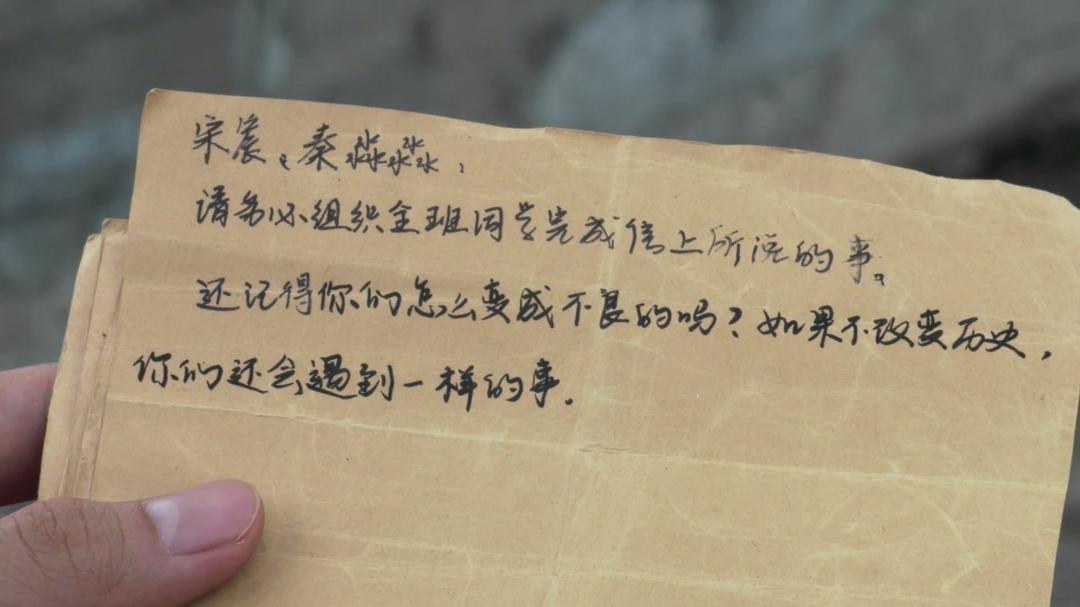 宋宸、秦淼淼，
请务必组织全班同学完成信上所说的事。
还记得你们怎么变成不良的吗？如果不改变历史，
你们还会遇到一样的事。